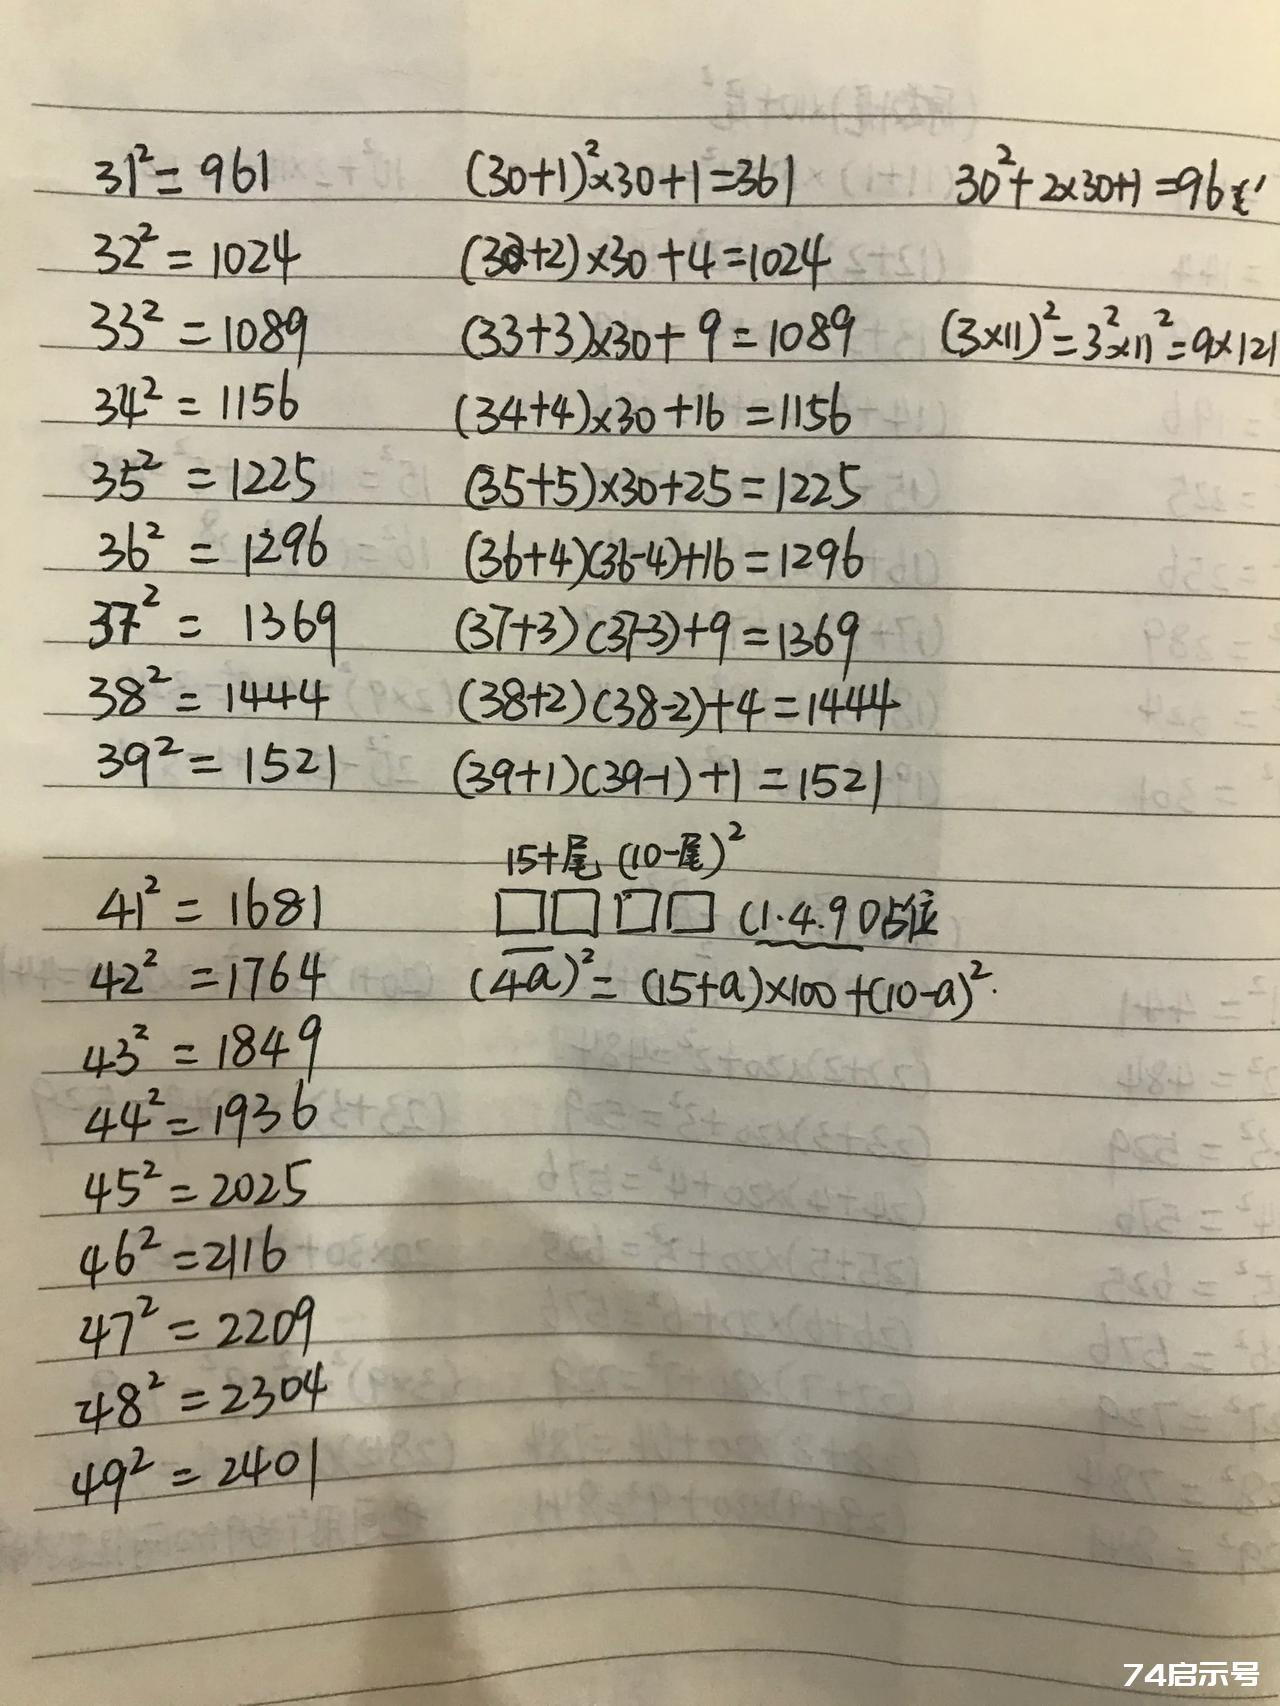 31² = 961 (30+1)²×30+1=361 30²+2×30+1=961
32² = 1024 (32+2)×30+4=1024
33² = 1089 (33+3)×30+9=1089 (3×11)²=3²×11²=9×121
34² = 1156 (34+4)×30+16=1156
35² = 1225 (35+5)×30+25=1225
36² = 1296 (36+4)(36-4)+16=1296
37² = 1369 (37+3)(37-3)+9=1369
38² = 1444 (38+2)(38-2)+4=1444
39² = 1521 (39+1)(39-1)+1=1521
15+尾 (10-尾)²
41² = 1681 □□ □□ (1.4.9 0占位
42² = 1764 (4a)² = (15+a)×100+(10-a)².
43² = 1849
44² = 1936
45² = 2025
46² = 2116
47² = 2209
48² = 2304
49² = 2401
74启示号